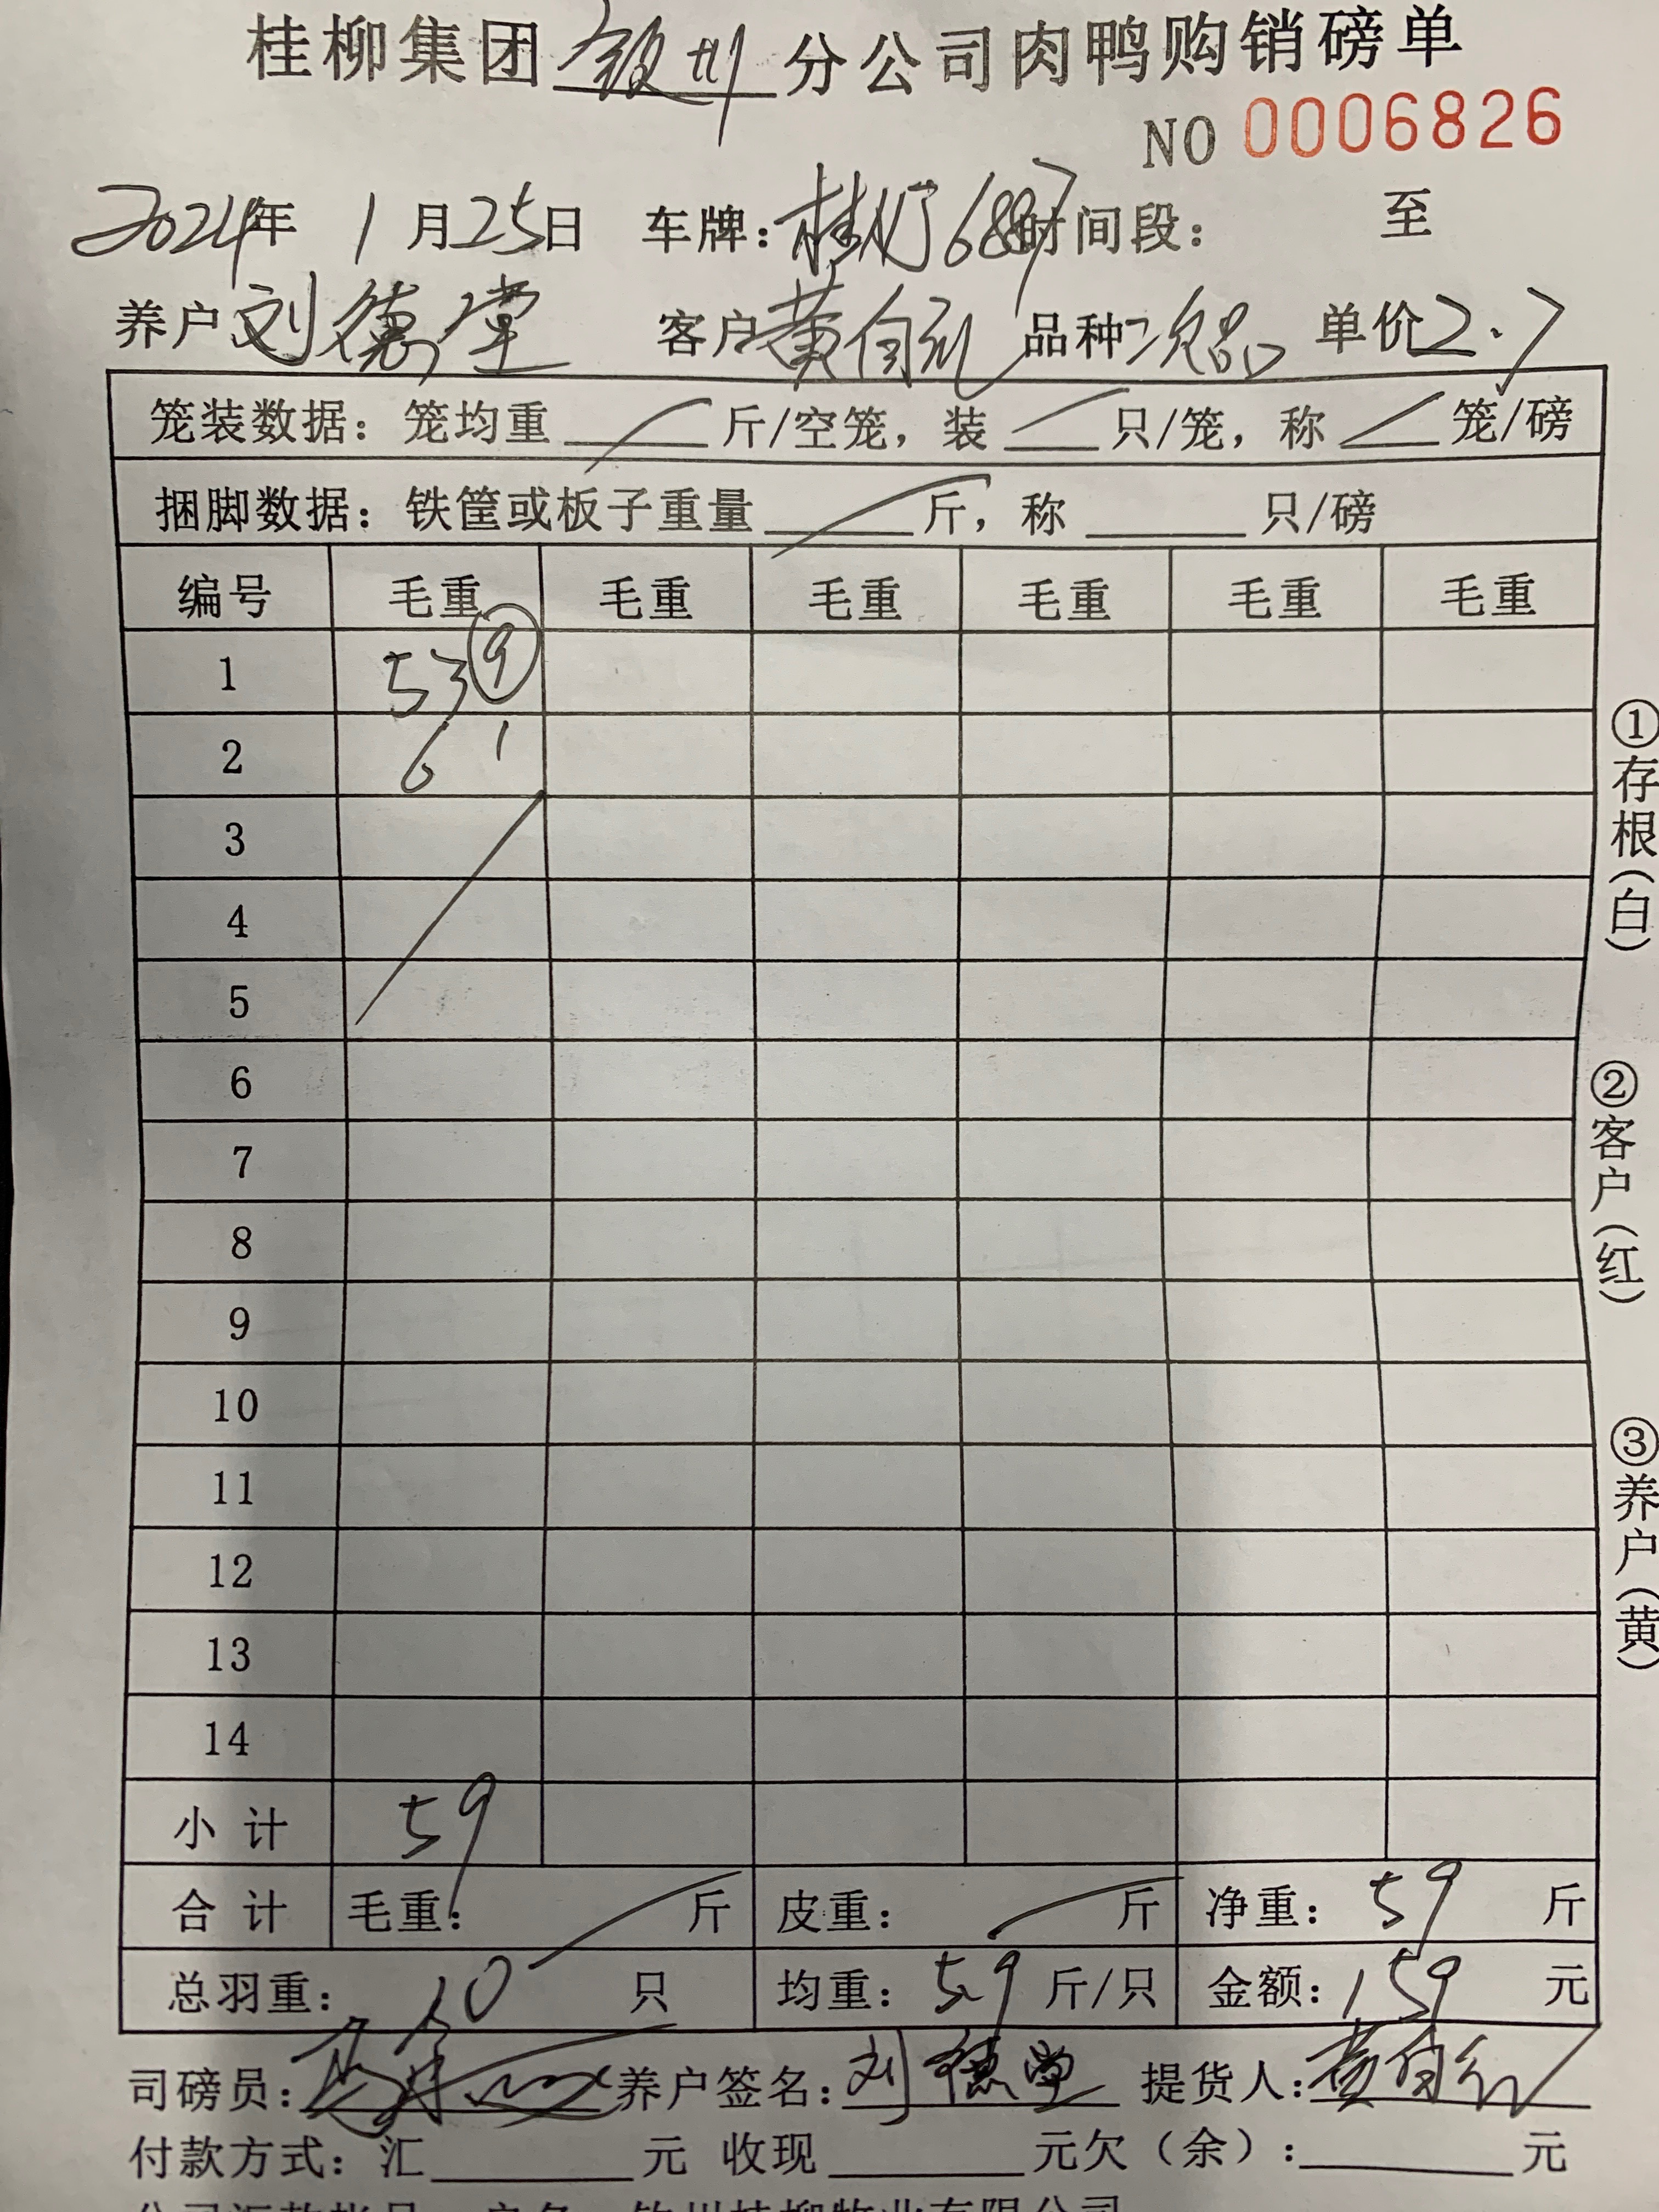 桂柳集团钦州分公司肉鸭购销磅单
NO 0006826
2024年 1月25日 车牌:桂 687 时间段: 至
养户 刘德堂 客户 黄自 品种 次品 单价 2.7
笼装数据: 笼均重 斤/空笼, 装 只/笼, 称 笼/磅
捆脚数据: 铁筐或板子重量 斤, 称 只/磅
编号 毛重 毛重 毛重 毛重 毛重 毛重
1 53 9
2 6 1
3
4
5
6
7
8
9
10
11
12
13
14
小计 59
合计 毛重: 斤 皮重: 斤 净重: 59 斤
总羽重: 10 只 均重: 5.9 斤/只 金额: 159 元
司磅员: 养户签名: 刘德堂 提货人: 黄自
付款方式: 汇 元 收现 元欠(余): 元
①存根(白)
②客户(红)
③养户(黄)